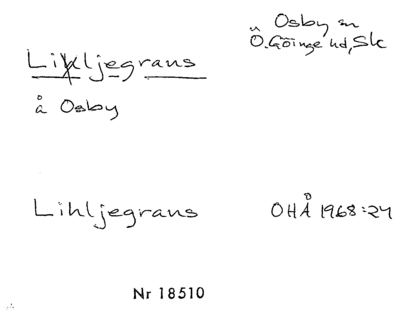 Osby sn
Ö.Göinge hd, Sk
Lihljegrans
å Osby
Lihljegrans
OHÅ 1968:24
Nr 18510